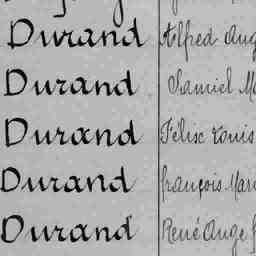 Durand Alfred Aug
Durand Daniel Ma
Durand Félix Louis
Durand François Mari
Durand René Ange